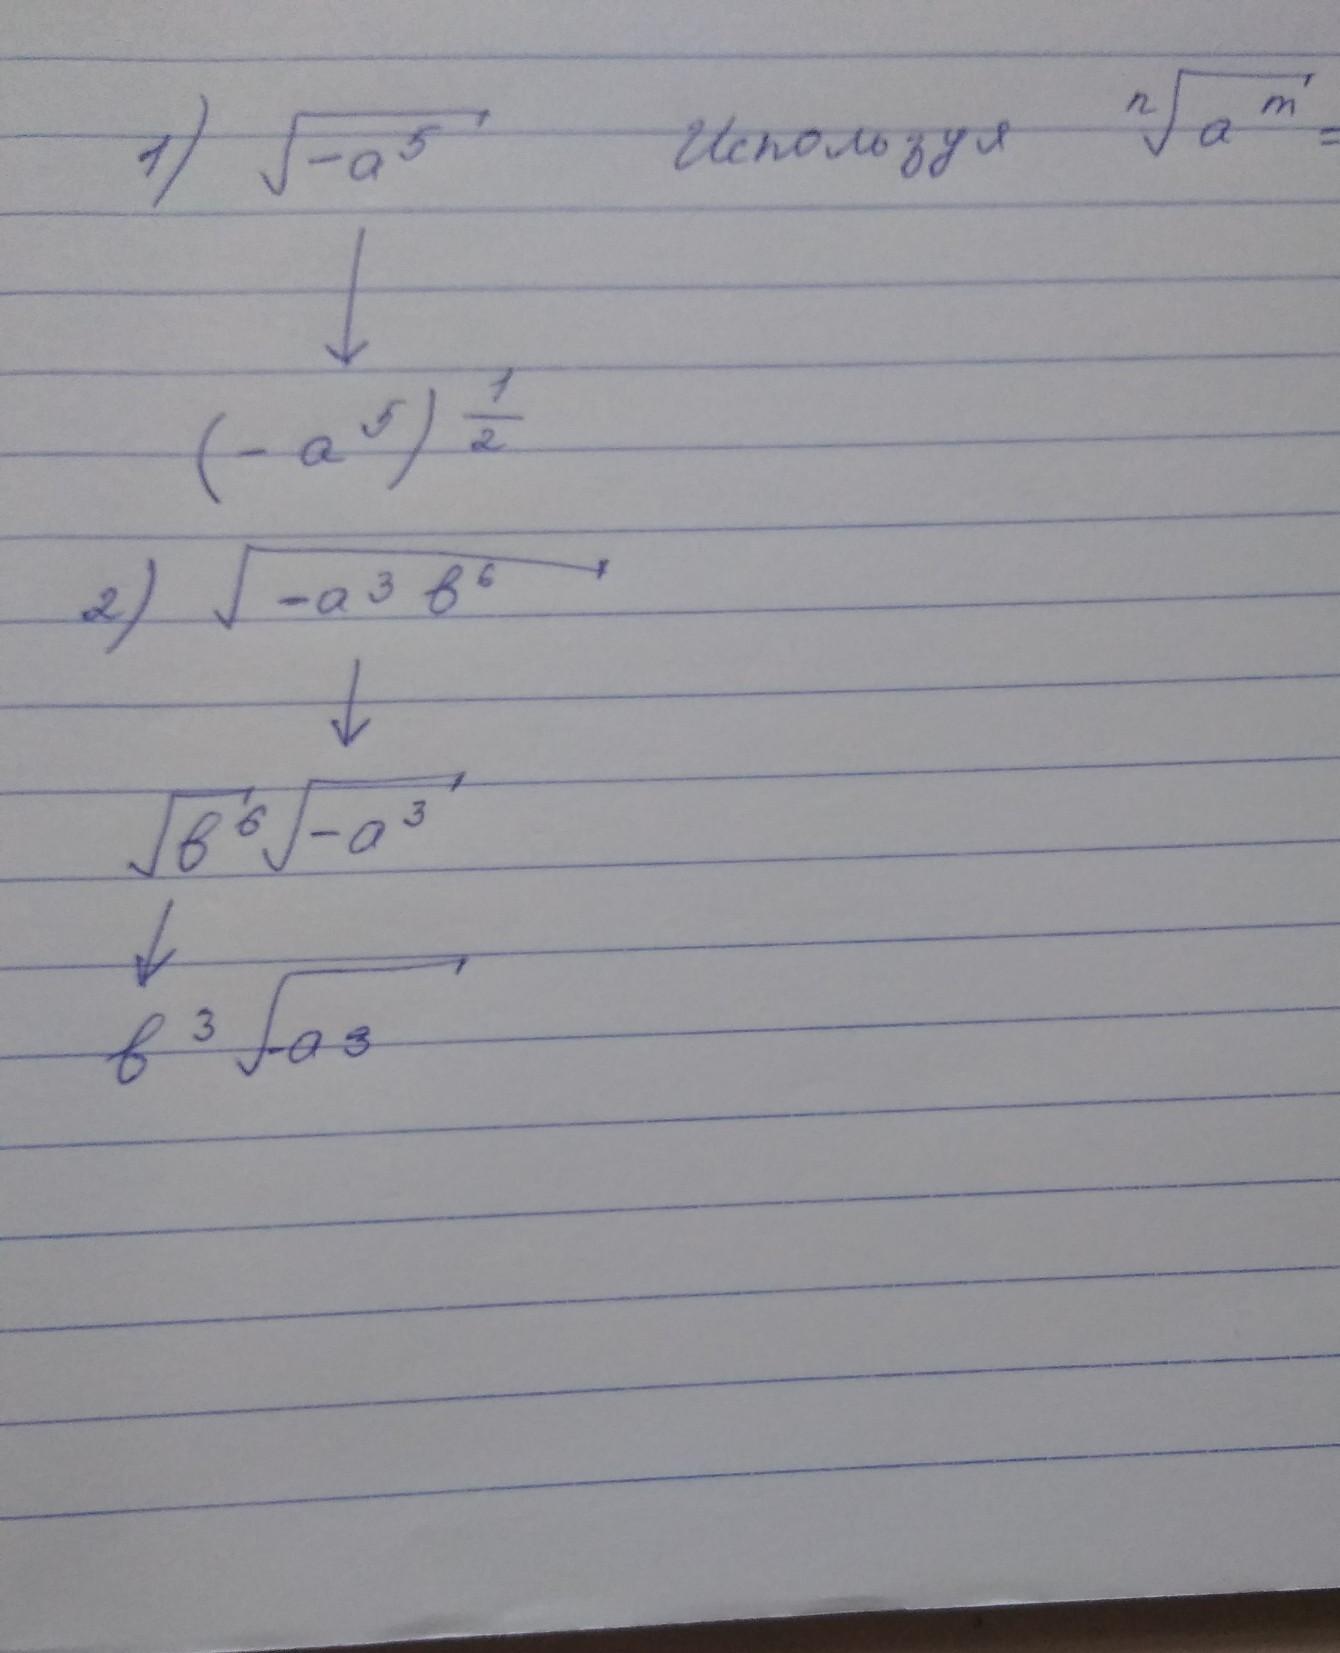 1) √-a⁵ Используя ⁿ√aᵐ =
↓
(-a⁵)^1/2
2) √-a³ в⁶
↓
√в⁶ √-a³
↓
в³ √-a3